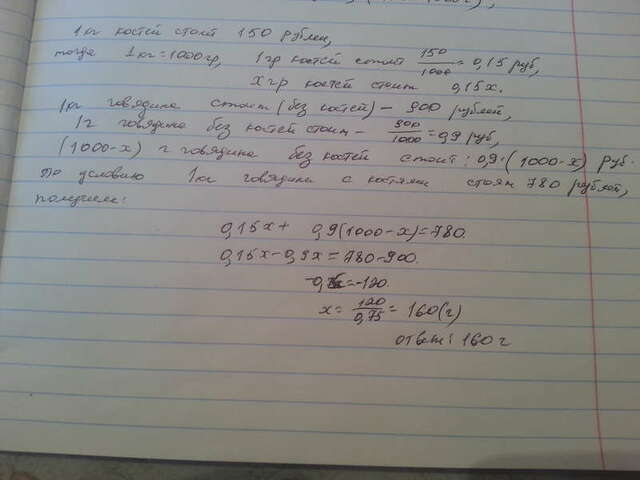 1 кг костей стоит 150 рублей,
тогда 1кг = 1000гр, 1гр костей стоит 150/1000 = 0,15 руб,
x гр костей стоит 0,15x.
1кг говядина стоит (без костей) – 900 рублей,
1г говядина без костей стоит – 900/1000 = 0,9 руб,
(1000-x) г говядина без костей стоит: 0,9·(1000-x) руб.
По условию 1кг говядина с костями стоят 780 рублей,
получаем:
0,15x + 0,9(1000-x)=780.
0,15x-0,9x=780-900.
=-120.
x = 120/0,75 = 160(г)
ответ: 160 г